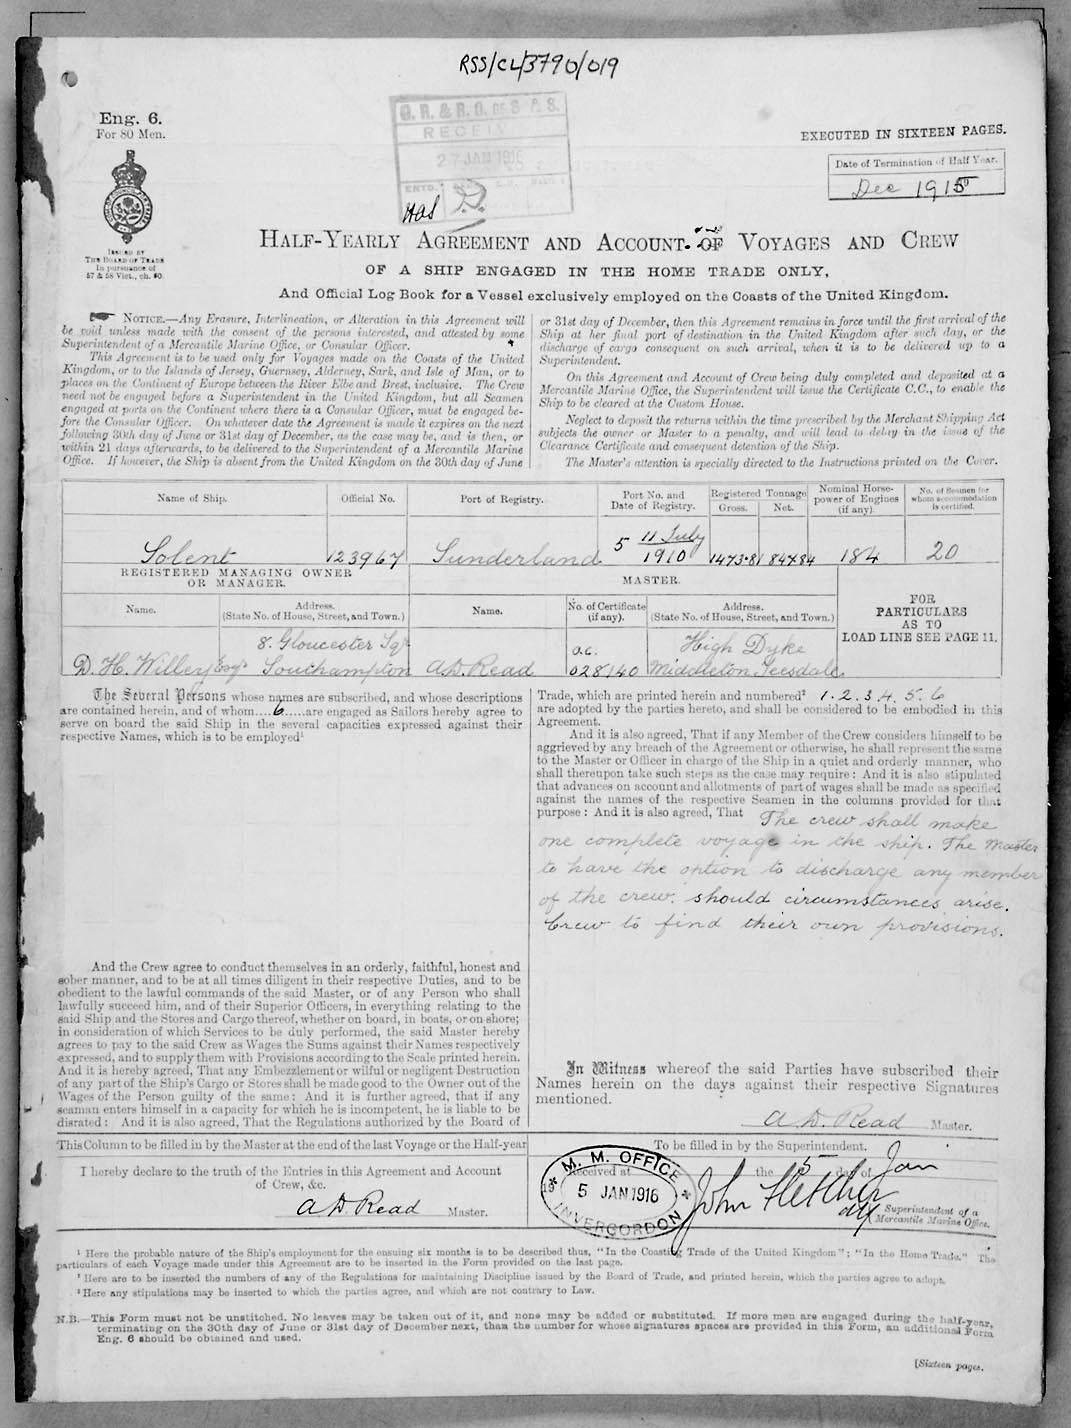 RSS/CL/3790/019
Eng. 6.
For 80 Men.
G. R. & R. O. OF S & S.
RECEIV
27 JAN 1916
ENTD.
Has
EXECUTED IN SIXTEEN PAGES.
Date of Termination of Half Year.
Dec 1915
ISSUED BY
THE BOARD OF TRADE
In pursuance of
57 & 58 Vict., ch. 60.
HALF-YEARLY AGREEMENT AND ACCOUNT OF VOYAGES AND CREW
OF A SHIP ENGAGED IN THE HOME TRADE ONLY,
And Official Log Book for a Vessel exclusively employed on the Coasts of the United Kingdom.
NOTICE.—Any Erasure, Interlineation, or Alteration in this Agreement will
be void unless made with the consent of the persons interested, and attested by some
Superintendent of a Mercantile Marine Office, or Consular Officer.
This Agreement is to be used only for Voyages made on the Coasts of the United
Kingdom, or to the Islands of Jersey, Guernsey, Alderney, Sark, and Isle of Man, or to
places on the Continent of Europe between the River Elbe and Brest, inclusive. The Crew
need not be engaged before a Superintendent in the United Kingdom, but all Seamen
engaged at ports on the Continent where there is a Consular Officer, must be engaged be-
fore the Consular Officer. On whatever date the Agreement is made it expires on the next
following 30th day of June or 31st day of December, as the case may be, and is then, or
within 21 days afterwards, to be delivered to the Superintendent of a Mercantile Marine
Office. If however, the Ship is absent from the United Kingdom on the 30th day of June
or 31st day of December, then this Agreement remains in force until the first arrival of the
Ship at her final port of destination in the United Kingdom after such day, or the
discharge of cargo consequent on such arrival, when it is to be delivered up to a
Superintendent.
On this Agreement and Account of Crew being duly completed and deposited at a
Mercantile Marine Office, the Superintendent will issue the Certificate C.C., to enable the
Ship to be cleared at the Custom House.
Neglect to deposit the returns within the time prescribed by the Merchant Shipping Act
subjects the owner or Master to a penalty, and will lead to delay in the issue of the
Clearance Certificate and consequent detention of the Ship.
The Master's attention is specially directed to the Instructions printed on the Cover.
Name of Ship.
Official No.
Port of Registry.
Port No. and
Date of Registry.
Registered Tonnage
Gross.
Net.
Nominal Horse-
power of Engines
(if any).
No. of Seamen for
whom accommodation
is certified.
Solent
123967
Sunderland
5 11 July
1910
1473.81
847.84
184
20
REGISTERED MANAGING OWNER
OR MANAGER.
MASTER.
Name.
Address.
(State No. of House, Street, and Town.)
Name.
No. of Certificate
(if any).
Address.
(State No. of House, Street, and Town.)
FOR
PARTICULARS
AS TO
LOAD LINE SEE PAGE 11.
D. H. Willey Esqr
8. Gloucester Sqr
Southampton
A.D. Read
o.c.
028140
High Dyke
Middleton Teesdale
The Several Persons whose names are subscribed, and whose descriptions
are contained herein, and of whom....6.....are engaged as Sailors hereby agree to
serve on board the said Ship in the several capacities expressed against their
respective Names, which is to be employed¹
And the Crew agree to conduct themselves in an orderly, faithful, honest and
sober manner, and to be at all times diligent in their respective Duties, and to be
obedient to the lawful commands of the said Master, or of any Person who shall
lawfully succeed him, and of their Superior Officers, in everything relating to the
said Ship and the Stores and Cargo thereof, whether on board, in boats, or on shore;
in consideration of which Services to be duly performed, the said Master hereby
agrees to pay to the said Crew as Wages the Sums against their Names respectively
expressed, and to supply them with Provisions according to the Scale printed herein.
And it is hereby agreed, That any Embezzlement or wilful or negligent Destruction
of any part of the Ship's Cargo or Stores shall be made good to the Owner out of the
Wages of the Person guilty of the same: And it is further agreed, that if any
seaman enters himself in a capacity for which he is incompetent, he is liable to be
disrated: And it is also agreed, That the Regulations authorized by the Board of
Trade, which are printed herein and numbered² 1. 2. 3. 4. 5. 6
are adopted by the parties hereto, and shall be considered to be embodied in this
Agreement.
And it is also agreed, That if any Member of the Crew considers himself to be
aggrieved by any breach of the Agreement or otherwise, he shall represent the same
to the Master or Officer in charge of the Ship in a quiet and orderly manner, who
shall thereupon take such steps as the case may require: And it is also stipulated
that advances on account and allotments of part of wages shall be made as specified
against the names of the respective Seamen in the columns provided for that
purpose: And it is also agreed, That The crew shall make
one complete voyage in the ship. The Master
to have the option to discharge any member
of the crew. should circumstances arise.
Crew to find their own provisions.
In Witness whereof the said Parties have subscribed their
Names herein on the days against their respective Signatures
mentioned.
A D. Read Master.
This Column to be filled in by the Master at the end of the last Voyage or the Half-year
I hereby declare to the truth of the Entries in this Agreement and Account
of Crew, &c.
A D. Read Master.
To be filled in by the Superintendent.
Received at the 5 day of Jan
M. M. OFFICE
5 JAN 1916
INVERGORDON
John Fletcher
Superintendent of a
Mercantile Marine Office.
¹ Here the probable nature of the Ship's employment for the ensuing six months is to be described thus, "In the Coasting Trade of the United Kingdom"; "In the Home Trade." The
particulars of each Voyage made under this Agreement are to be inserted in the Form provided on the last page.
² Here are to be inserted the numbers of any of the Regulations for maintaining Discipline issued by the Board of Trade, and printed herein, which the parties agree to adopt.
³ Here any stipulations may be inserted to which the parties agree, and which are not contrary to Law.
N.B.—This Form must not be unstitched. No leaves may be taken out of it, and none may be added or substituted. If more men are engaged during the half-year,
terminating on the 30th day of June or 31st day of December next, than the number for whose signatures spaces are provided in this Form, an additional Form
Eng. 6 should be obtained and used.
[Sixteen pages.